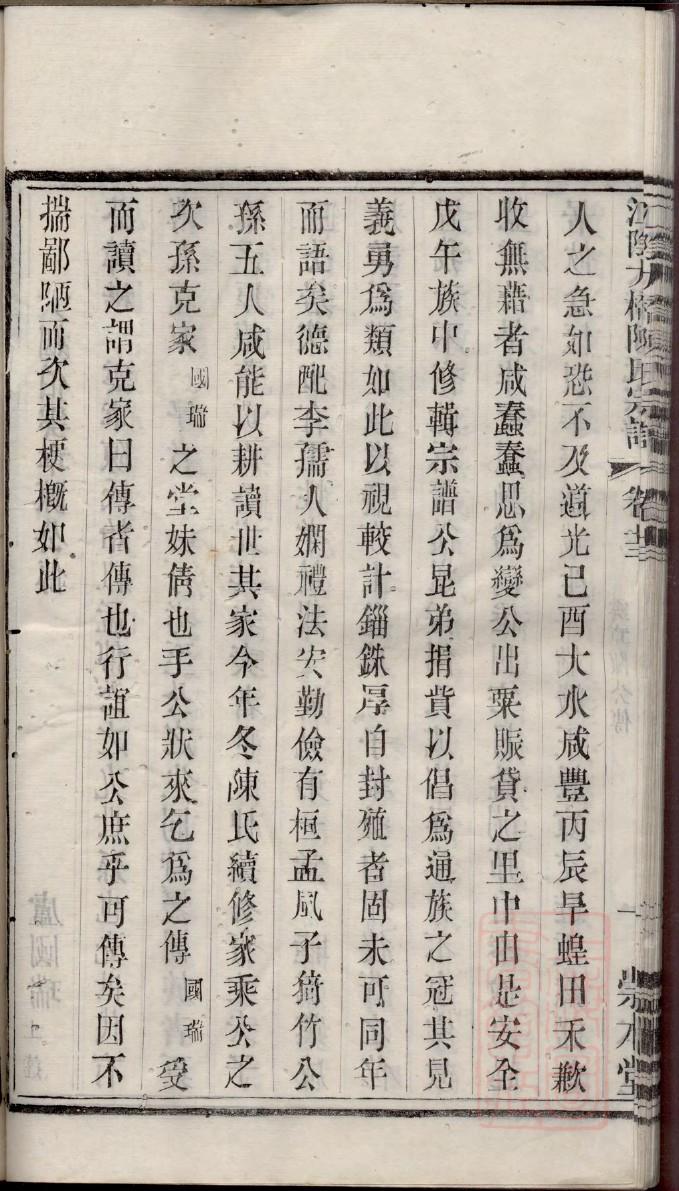 人之急如恐不及道光己酉大水咸豐丙辰旱蝗田禾歉
收無藉者咸蠢蠢思爲變公出粟賑貸之里中由是安全
戊午族中修輯宗譜公昆弟捐貲以倡爲通族之冠其見
義勇爲類如此以視較計錙銖厚自封殖者固未可同年
而語矣德配李孺人嫻禮法安勤儉有桓孟風子猗竹公
孫五人咸能以耕讀世其家今年冬陳氏續修家乘公之
次孫克家國瑞之堂妹倩也手公狀來乞爲之傳國瑞受
而讀之謂克家曰傳者傳也行誼如公庶乎可傳矣因不
揣鄙陋而次其梗概如此
江陰九橋陳氏宗譜 卷
一
堂